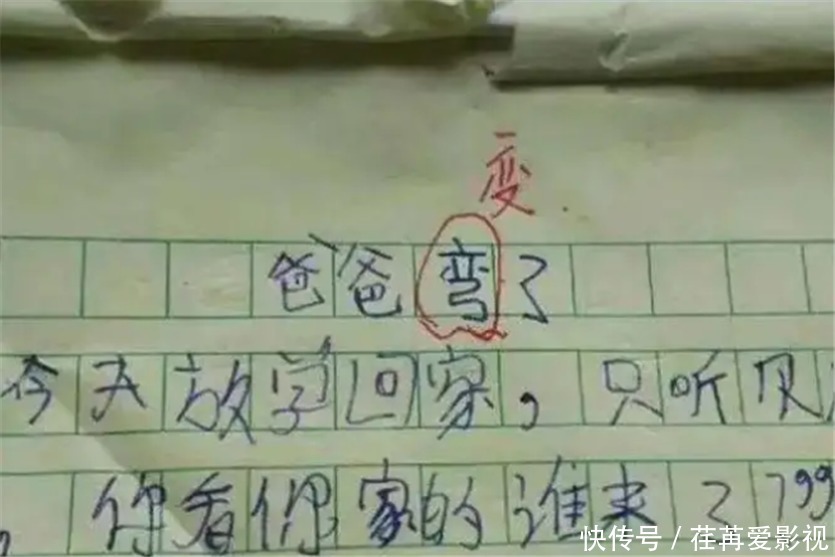 变
爸爸弯了
今天放学回家，只听见
，你看你家的谁来了？爸
快传号／荏苒爱影视